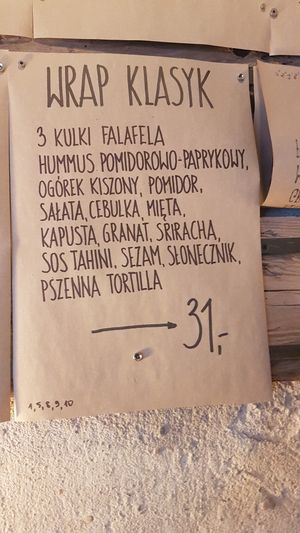 WRAP KLASYK
3 KULKI FALAFELA
HUMMUS POMIDOROWO-PAPRYKOWY,
OGÓREK KISZONY, POMIDOR,
SAŁATA, CEBULKA, MIĘTA,
KAPUSTA, GRANAT, SRIRACHA,
SOS TAHINI, SEZAM, SŁONECZNIK,
PSZENNA TORTILLA
31,-
1, 5, 8, 9, 10